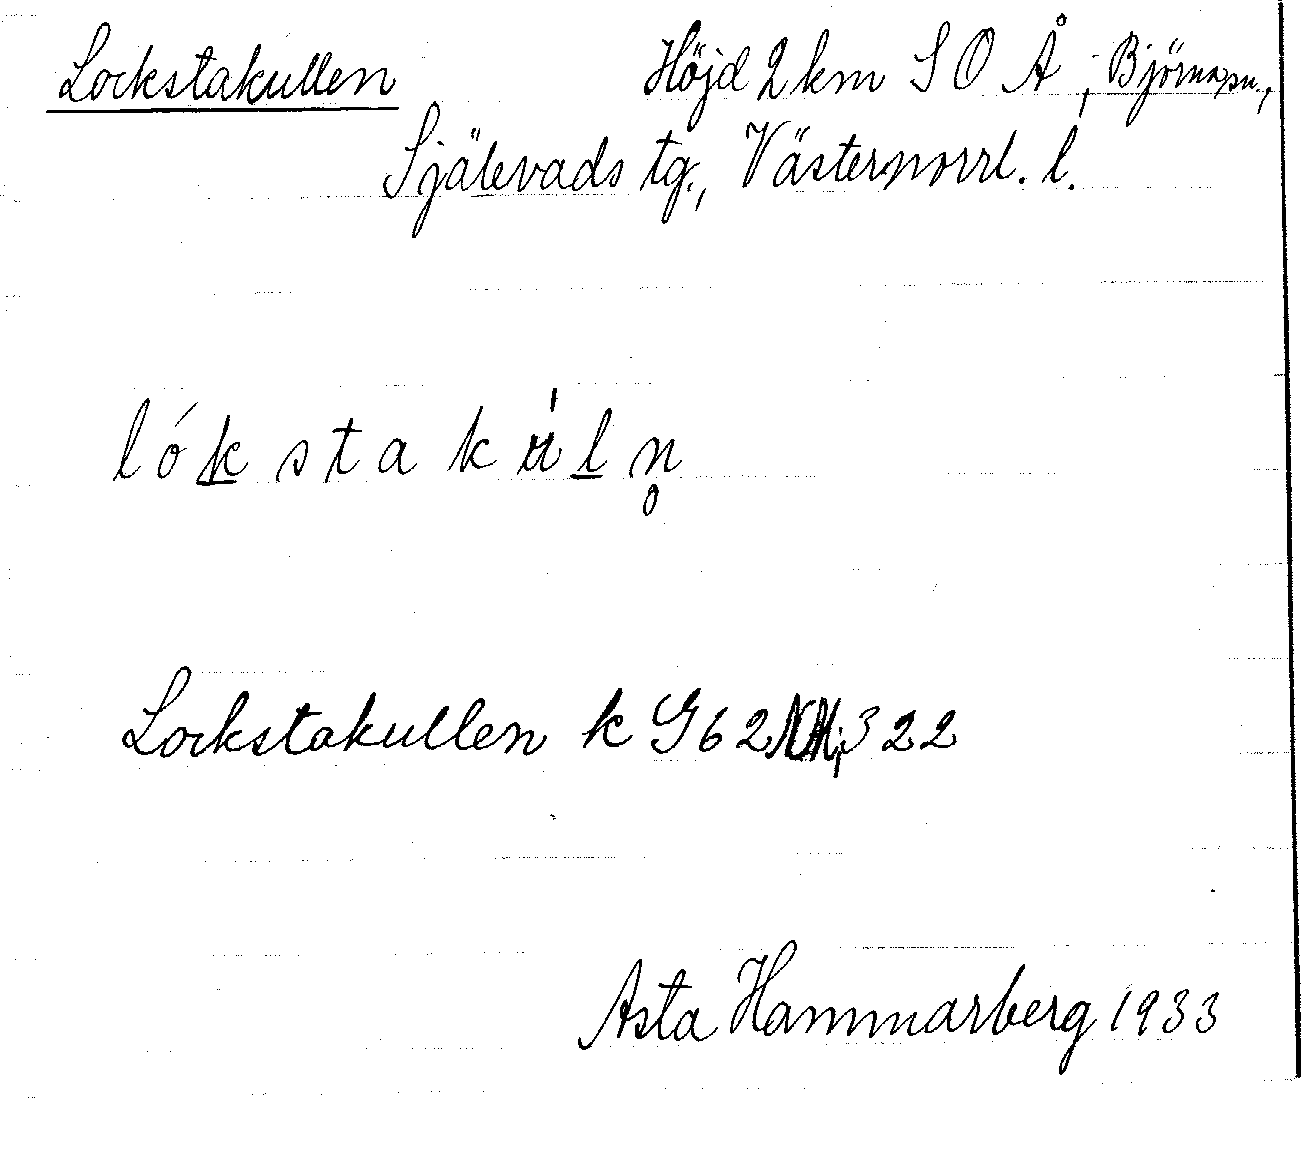 Lockstakullen Höjd 2 km S O Å, Björna sn.,
Själevads tg., Västernorrl. l.
lók̲stakʉ̍l̲n̥
Lockstakullen k G 62 322
Asta Hammarberg 1933